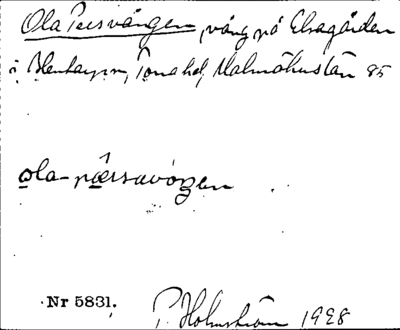 Ola Persvången, vång på Elsagården
i Blentarp sn, Torna hd, Malmöhus län 85
ola-pærsavóŋen
Nr 5831.
P. Holmström 1928